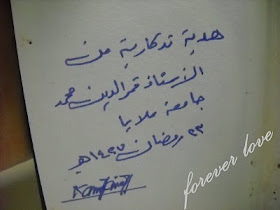 هدية تذكارية من
الأستاذ قمر الدين محمد
جامعة ملايا
٢٣ رمضان ١٤٢٧هـ
forever love